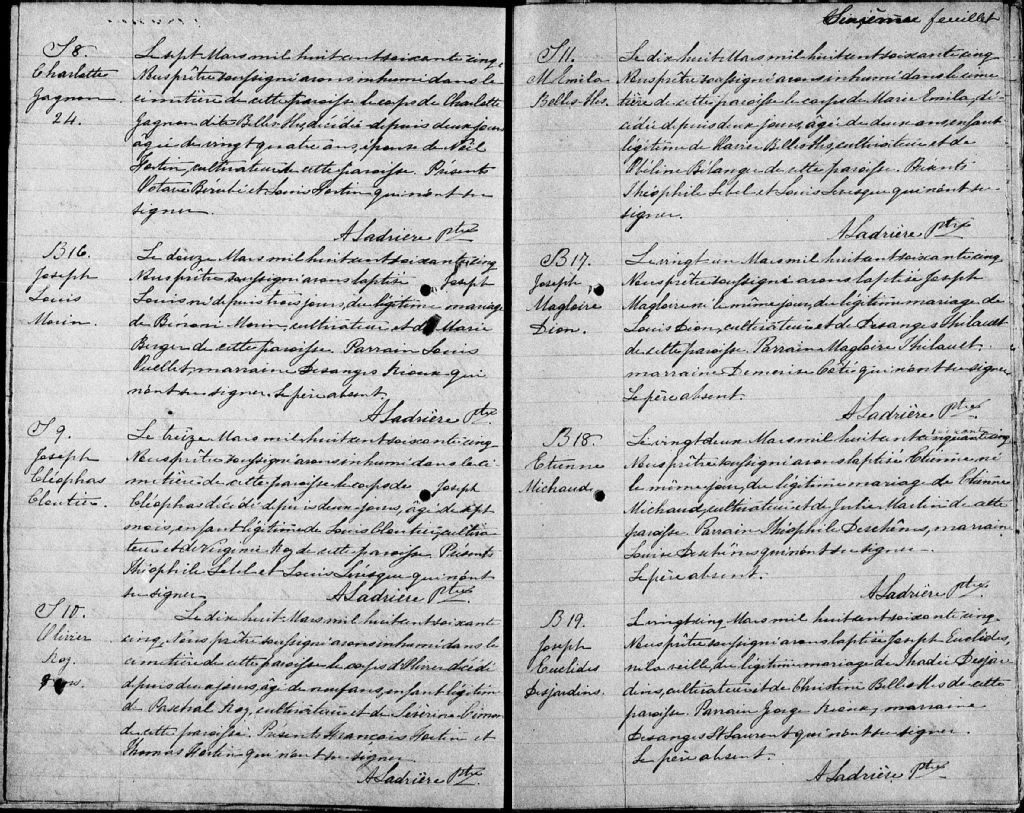 S 8
Charlotte
Gagnon
24.
Le sept Mars mil huit cent soixante cinq,
Nous prêtre soussigné avons inhumé dans le
cimetière de cette paroisse le corps de Charlotte
Gagnon dite Belles-Iles, décédée depuis deux jours
âgée de vingt quatre ans, épouse de Noël
Fortin, cultivateur de cette paroisse. Présents
Octave Berubé et Louis Fortin qui n'ont su
signer.
A Ladrière ptre
B 16.
Joseph
Louis
Morin.
Le douze Mars mil huit cent soixante cinq
Nous prêtre soussigné avons baptisé Joseph
Louis né depuis trois jours, du légitime mariage
de Bénoni Morin, cultivateur, et de Marie
Berger de cette paroisse. Parrain Louis
Ouellet, marraine Desanges Rioux qui
n'ont su signer. Le père absent.
A Ladrière ptre
S 9.
Joseph
Cléophas
Cloutier.
Le treize Mars mil huit cent soixante cinq
Nous prêtre soussigné avons inhumé dans le ci-
metière de cette paroisse le corps de Joseph
Cléophas décédé depuis deux jours, âgé de sept
mois, enfant légitime de Louis Cloutier, cultiva-
teur et de Virginie Roy de cette paroisse. Présents
Théophile Lebel et Louis Lévesque qui n'ont
su signer
A Ladrière ptre
S 10.
Olivier
Roy.
Le dix huit Mars mil huit cent soixante
cinq, Nous prêtre soussigné avons inhumé dans le
cimetière de cette paroisse le corps d'Olivier décédé
depuis deux jours, âgé de neuf ans, enfant légitime
de Paschal Roy, cultivateur et de Séverine Dumon
de cette paroisse. Présents François Fortin et
Thomas Fortin qui n'ont su signer
A Ladrière ptre
Sixième feuillet
S 11.
M. Emila
Belles-Iles.
Le dix huit Mars mil huit cent soixante cinq
Nous prêtre soussigné avons inhumé dans le cime-
tière de cette paroisse le corps de Marie Emila, dé-
cédée depuis deux jours, âgée de deux ans, enfant
légitime de Xavier Belles-Iles, cultivateur et de
Obéline Bélanger de cette paroisse. Présents
Théophile Lebel et Louis Lévesque qui n'ont su
signer.
A Ladrière ptre
B 17.
Joseph
Magloire
Dion.
Le vingt un Mars mil huit cent soixante cinq
Nous prêtre soussigné avons baptisé Joseph
Magloire né le même jour, du légitime mariage de
Louis Dion, cultivateur et de Desanges Thibault
de cette paroisse. Parrain Magloire Thibault
marraine Demerise Côté qui n'ont su signer
Le père absent.
A Ladrière ptre
B 18.
Etienne
Michaud
soixante
Le vingt deux Mars mil huit cent cinquante cinq
Nous prêtre soussigné avons baptisé Etienne né
le même jour, du légitime mariage de Etienne
Michaud, cultivateur et de Julie Martin de cette
paroisse. Parrain Théophile Deschênes, marraine
Louise Deschênes qui n'ont su signer.
Le père absent.
A Ladrière ptre
B 19.
Joseph
Euclides
Desjardins.
Le vingt cinq Mars mil huit cent soixante cinq
Nous prêtre soussigné avons baptisé Joseph Euclides,
né la veille, du légitime mariage de Thadée Desjar-
dins, cultivateur et de Christine Belles-Iles de cette
paroisse. Parrain George Rioux, marraine
Desanges St Laurent qui n'ont su signer.
Le père absent.
A Ladrière ptre